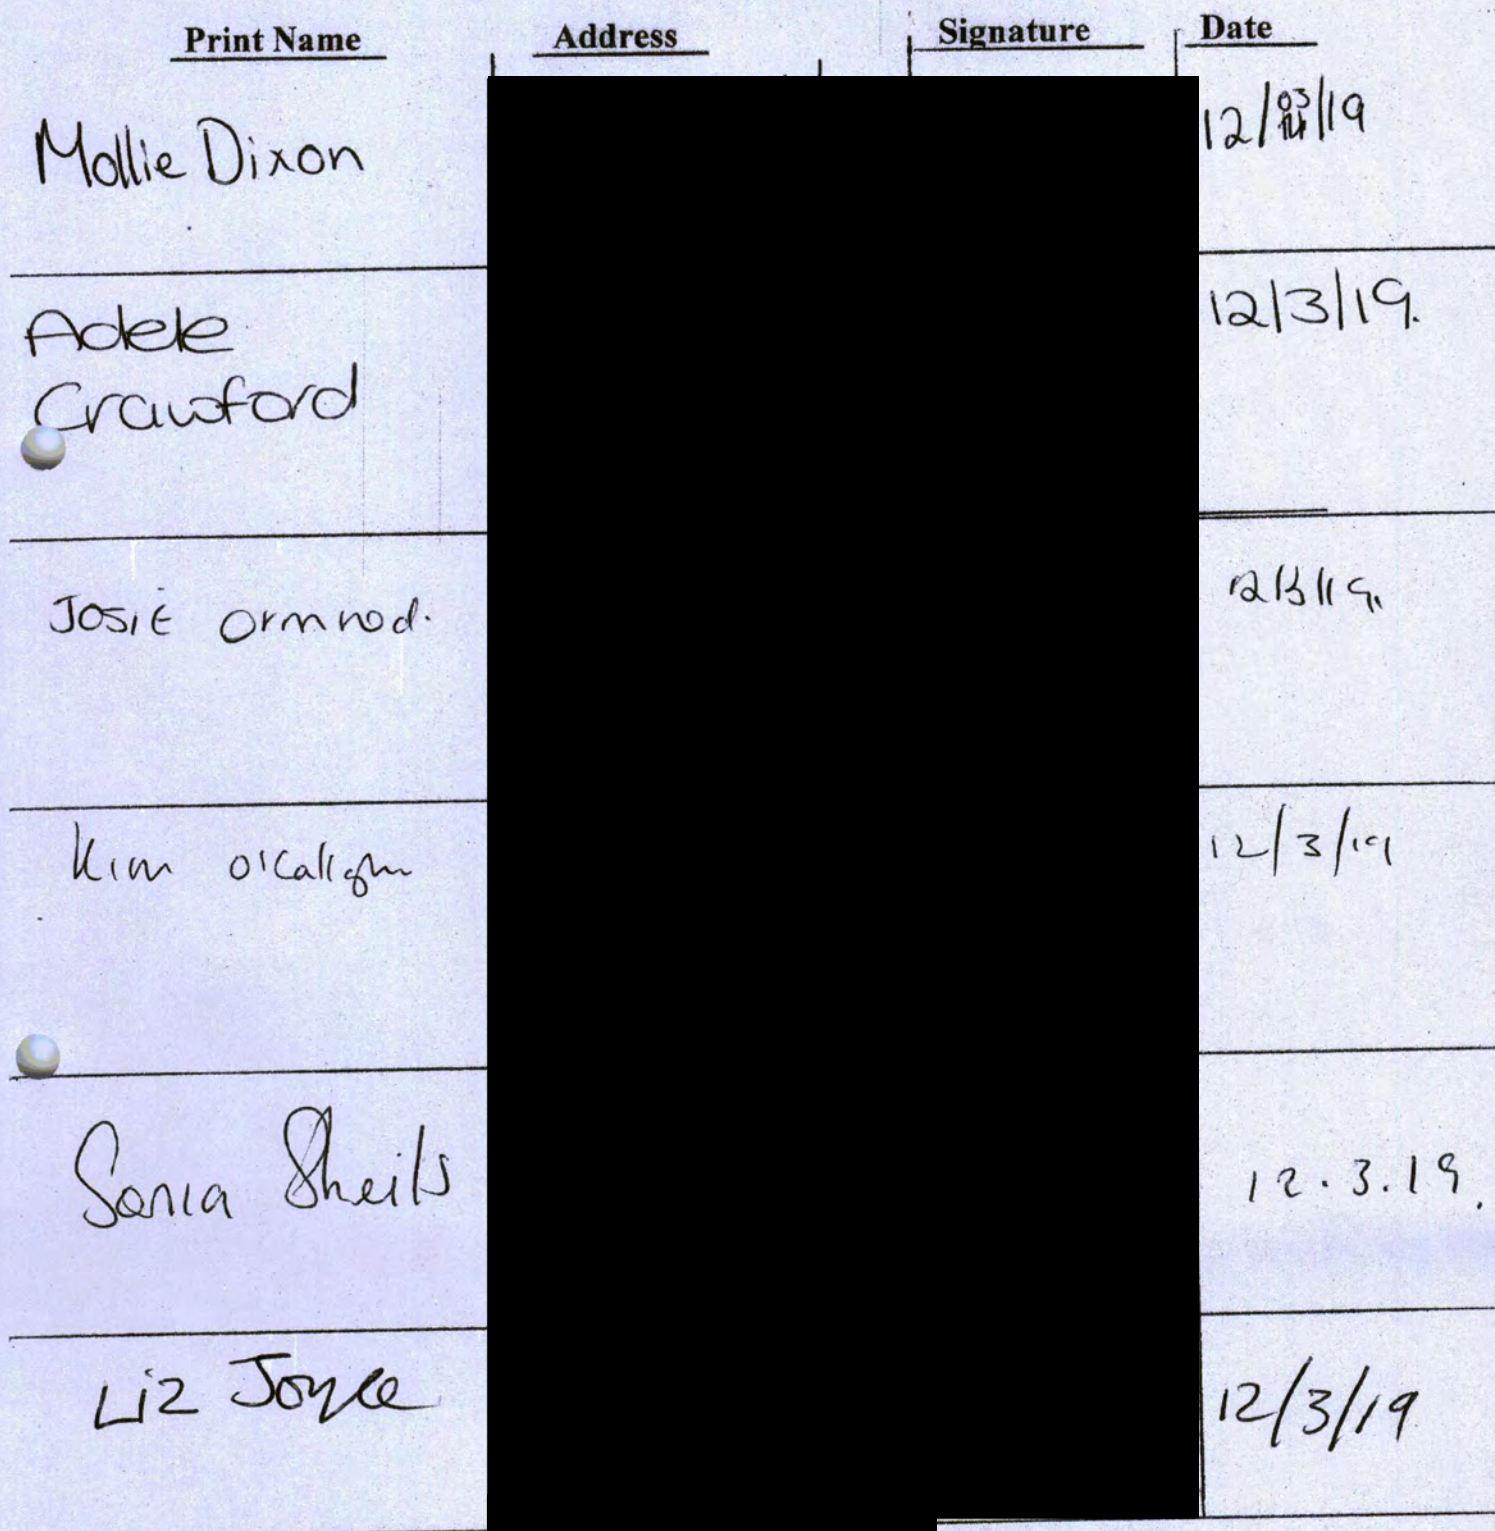 Print Name Address Signature Date
Mollie Dixon 12/03/19
Adele 12/3/19.
Crawford
Josie Ormrod. 12/3/19.
Kim O'Callghn 12/3/19
Sonia Sheils 12.3.19.
Liz Joyce 12/3/19